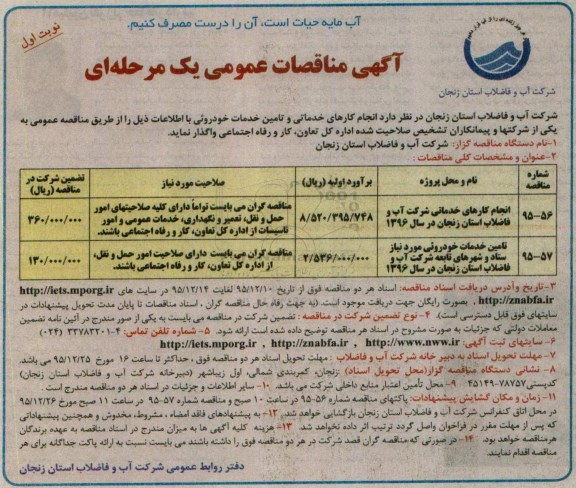 آب مایه حیات است، آن را درست مصرف کنیم.
نوبت اول
آگهی مناقصات عمومی یک مرحله‌ای
شرکت آب و فاضلاب استان زنجان
شرکت آب و فاضلاب استان زنجان در نظر دارد انجام کارهای خدماتی و تامین خدمات خودروئی با اطلاعات ذیل را از طریق مناقصه عمومی به
یکی از شرکتها و پیمانکاران تشخیص صلاحیت شده اداره کل تعاون، کار و رفاه اجتماعی واگذار نماید.
۱-نام دستگاه مناقصه گزار: شرکت آب و فاضلاب استان زنجان
۲-عنوان و مشخصات کلی مناقصات :
شماره مناقصه | نام و محل پروژه | برآورد اولیه (ریال) | صلاحیت مورد نیاز | تضمین شرکت در مناقصه (ریال)
۹۵-۵۶ | انجام کارهای خدماتی شرکت آب و فاضلاب استان زنجان در سال ۱۳۹۶ | ۸/۵۲۰/۳۹۵/۷۴۸ | مناقصه گران می بایست تواماً دارای کلیه صلاحیتهای امور حمل و نقل، تعمیر و نگهداری، خدمات عمومی و امور تاسیسات از اداره کل تعاون، کار و رفاه اجتماعی باشند. | ۳۶۰/۰۰۰/۰۰۰
۹۵-۵۷ | تامین خدمات خودروئی مورد نیاز ستاد و شهرهای تابعه شرکت آب و فاضلاب استان زنجان در سال ۱۳۹۶ | ۲/۵۳۶/۰۰۰/۰۰۰ | مناقصه گران می بایست دارای صلاحیت امور حمل و نقل، از اداره کل تعاون، کار و رفاه اجتماعی باشند. | ۱۳۰/۰۰۰/۰۰۰
۳-تاریخ وآدرس دریافت اسناد مناقصه: اسناد هر دو مناقصه فوق از تاریخ ۹۵/۱۲/۱۰ لغایت ۹۵/۱۲/۱۴ در سایت های http://iets.mporg.ir
, http://znabfa.ir بصورت رایگان جهت دریافت موجود است. (به جهت رفاه حال مناقصه گران ، اسناد مناقصات تا پایان مدت تحویل پیشنهادات در
سایتهای فوق قابل دسترسی است). ۴- نوع تضمین شرکت در مناقصه : تضمین شرکت در مناقصه می بایست به یکی از صور مندرج در آئین نامه تضمین
معاملات دولتی که جزئیات به صورت مشروح در اسناد هر مناقصه توضیح داده شده است ارائه شود. ۵- شماره تلفن تماس: ۴-۳۳۷۸۳۲۰۱ (۰۲۴)
۶- سایتهای ثبت آگهی: http://www.nww.ir , http://znabfa.ir , http://iets.mporg.ir
۷- مهلت تحویل اسناد به دبیر خانه شرکت آب و فاضلاب : مهلت تحویل اسناد هر دو مناقصه فوق ، حداکثر تا ساعت ۱۶ مورخ ۹۵/۱۲/۲۵ می باشد.
۸- نشانی دستگاه مناقصه گزار(محل تحویل اسناد): زنجان، کمربندی شمالی، اول زیباشهر (دبیرخانه شرکت آب و فاضلاب استان زنجان)
کدپستی۷۸۷۵۷-۴۵۱۴۹ ۹- محل تأمین اعتبار منابع داخلی شرکت می باشد. ۱۰- سایر اطلاعات و جزئیات در اسناد هر دو مناقصه مندرج است .
۱۱- زمان و مکان گشایش پیشنهادات: پاکتهای مناقصه شماره ۵۶-۹۵ در ساعت ۱۰ صبح و مناقصه شماره ۵۷-۹۵ در ساعت ۱۱ صبح مورخ ۹۵/۱۲/۲۶
در محل اتاق کنفرانس شرکت آب و فاضلاب استان زنجان بازگشایی خواهد شد. ۱۲- به پیشنهادهای فاقد امضاء ، مشروط، مخدوش و همچنین پیشنهاداتی
که پس از مهلت مقرر در فراخوان واصل گردد ترتیب اثر داده نخواهد شد. ۱۳- هزینه کلیه آگهی ها به میزان مندرج در اسناد مناقصه به عهده برندگان
هرمناقصه خواهد بود. ۱۴- در صورتی که مناقصه گران قصد شرکت در هر دو مناقصه فوق را داشته باشند می بایست نسبت به ارائه پاکت جداگانه برای هر
مناقصه اقدام نمایند.
دفتر روابط عمومی شرکت آب و فاضلاب استان زنجان